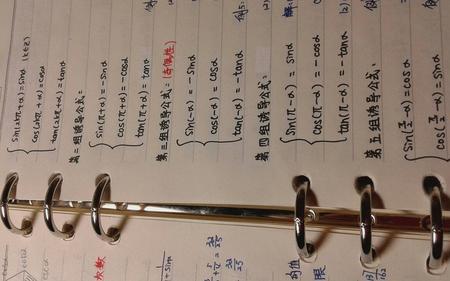 sin(2kπ+α)=sinα (k∈Z)
cos(2kπ+α)=cosα
tan(2kπ+α)=tanα
第二组诱导公式:
sin(π+α)=-sinα
cos(π+α)=-cosα
tan(π+α)=tanα
第三组诱导公式:(奇偶性)
sin(-α)=-sinα
cos(-α)=cosα
tan(-α)=-tanα
第四组诱导公式:
sin(π-α)=sinα
cos(π-α)=-cosα
tan(π-α)=-tanα
第五组诱导公式:
sin(π/2-α)=cosα
cos(π/2-α)=sinα
例5:
解:
(2)
次数